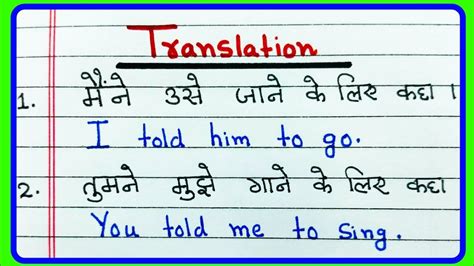 Translation
1. मैंने उसे जाने के लिए कहा ।
I told him to go.
2. तुमने मुझे गाने के लिए कहा
You told me to sing.